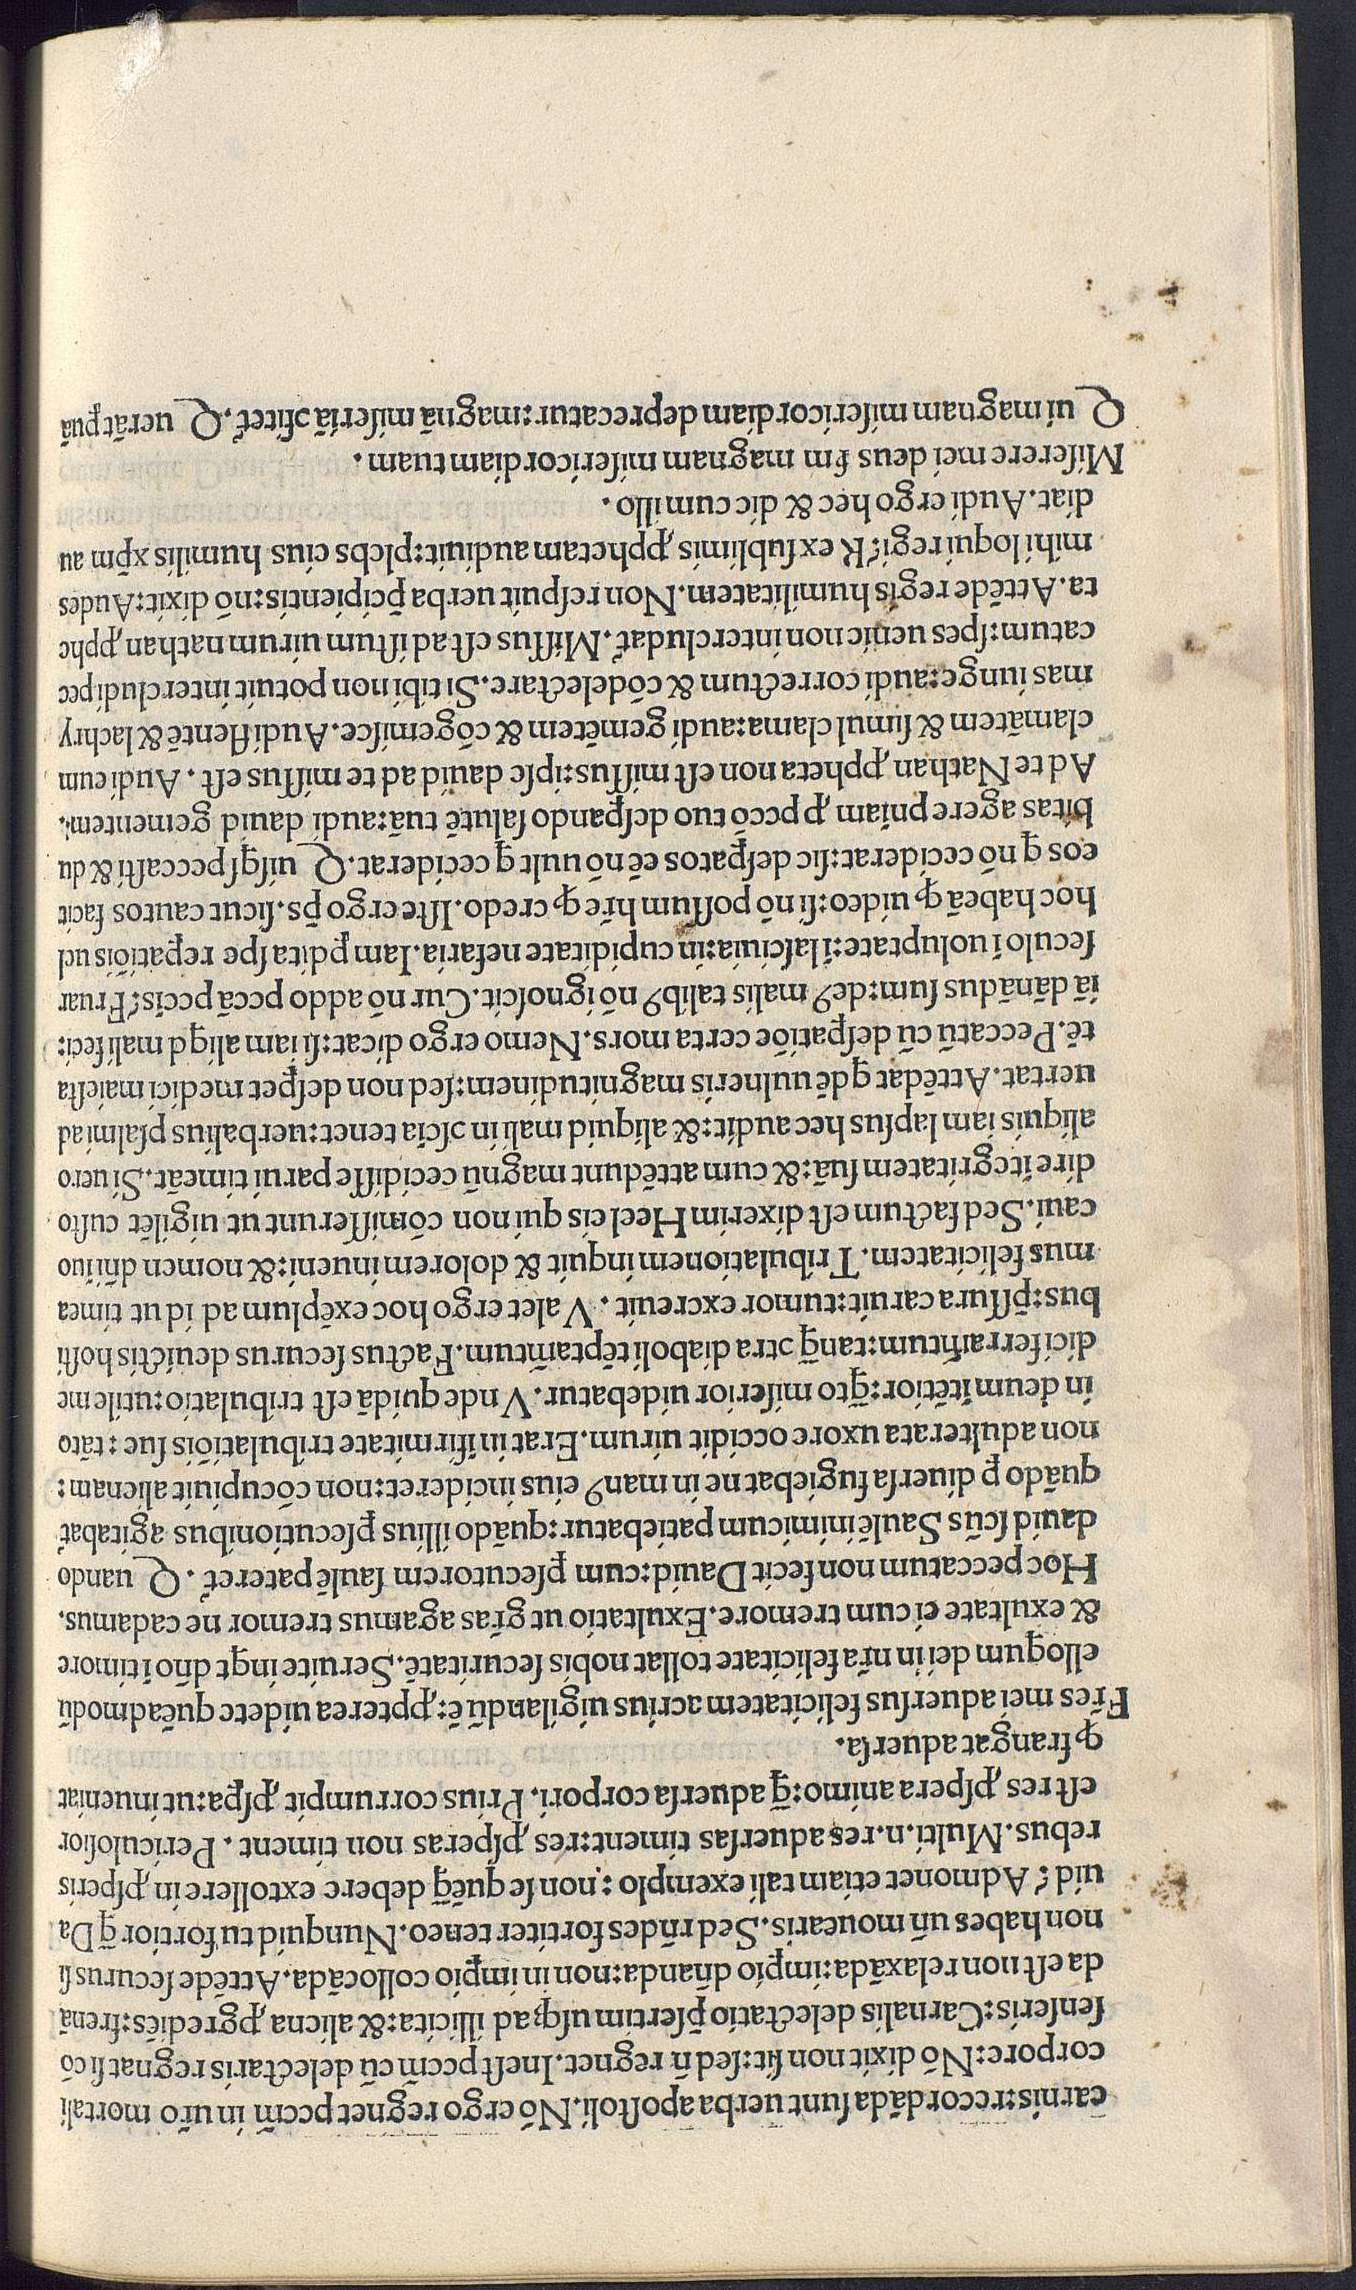 carnis: recordãda sunt uerba apostoli. Nõ ergo regnet pccm̃ in uro mortali
corpore: Nõ dixit non sit: sed ñ regnet. Inest pccm̃ cũ delectaris regnat si cõ
senseris: Carnalis delectatio p̃sertim usq; ad illicita: & aliena ꝓgrediẽs: frenã
da est non relaxãda: imꝑio dñanda: non in imꝑio collocãda. Attẽde securus si
non habes uñ mouearis. Sed rñdes fortiter teneo. Nunquid tu fortior q̃ Da
uid? Admonet etiam tali exemplo: non se quẽq̃ debere extollere in ꝓsperis
rebus. Multi .n. res aduersas timent: res ꝓsperas non timent. Periculosior
est res ꝓspera animo: q̃ aduersa corpori. Prius corrumpit ꝓsꝑa: ut inueniat
ꝙ frangat aduersa.
Fr̃es mei aduersus felicitatem acrius uigilandũ ẽ: ꝓpterea uidete quẽadmodũ
elloquum dei in nr̃a felicitate tollat nobis securitatẽ. Seruite inqt dño ĩ timore
& exultate ei cum tremore. Exultatio ut gr̃as agamus tremor ne cadamus.
Hoc peccatum non fecit Dauid: cum ꝑsecutorem saulẽ pateret᷑. Quando
dauid sc̃us Saulẽ inimicum patiebatur: quãdo illius ꝑsecutionibus agitabat᷑
quãdo ꝑ diuersa fugiebat ne in manꝰ eius incideret: non cõcupiuit alienam:
non adulterata uxore occidit uirum. Erat in ĩfirmitate tribulatiõis sue: tãto
in deum ĩtẽtior: q̃to miserior uidebatur. Vnde quidã est tribulatio: utile me
dici ferram̃tum: tanq̃ ɔtra diaboli tẽptam̃tum. Factus securus deuictis hosti
bus: p̃ssura caruit: tumor excreuit. Valet ergo hoc exẽplum ad id ut timea
mus felicitatem. Tribulationem inquit & dolorem inueni: & nomen dñi inuo
caui. Sed factum est dixerim Hec eis qui non cõmisserunt ut uigilẽt custo
dire ĩtegritatem suã: & cum attẽdunt magnũ cecidisse parui timeãt. Si uero
aliquis iam lapsus hec audit: & aliquid mali in ɔsc̃ia tenet: uerba lius psalmi ad
uertat. Attẽdat qdẽ uulneris magnitudinem: sed non desꝑet medici maiesta
tẽ. Peccatũ cũ desꝑatiõe certa mors. Nemo ergo dicat: si iam aliqd mali feci:
iã dãnãdus sum: deꝰ malis talibꝰ nõ ignoscit. Cur nõ addo pccã pccis? Fruar
seculo ĩ uoluptate: ĩ lasciuia: in cupiditate nefaria. Iam ꝑdita spe reꝑatiõis uel
hoc habeã ꝙ uideo: si nõ possum hr̃e ꝙ credo. Iste ergo p̃s. sicut cautos facit
eos q nõ ceciderat: sic desꝑatos eẽ nõ uult q ceciderat. Quisqs peccasti & du
bitas agere pñiam ꝓ pccõ tuo desꝑando salutẽ tuã: audi dauid gementem.
Ad te Nathan ꝓpheta non est missus: ipse dauid ad te missus est. Audi eum
clamãtem & simul clama: audi gemẽtem & cõgemisce. Audi flentẽ & lachry
mas iunge: audi correctum & cõdelectare. Si tibi non potuit intercludi pec
catum: spes uenie non intercludat᷑. Missus est ad istum uirum nathan ꝓphe
ta. Attẽde regis humilitatem. Non respuit uerba p̃cipientis: nõ dixit: Audes
mihi loqui regi? Rex sublimis ꝓphetam audiuit: plebs eius humilis xp̃m au
diat. Audi ergo hec & dic cum illo.
Miserere mei deus sm̃ magnam misericordiam tuam.
Qui magnam misericordiam deprecatur: magnã miseriã ɔfitet᷑. Querãt puã